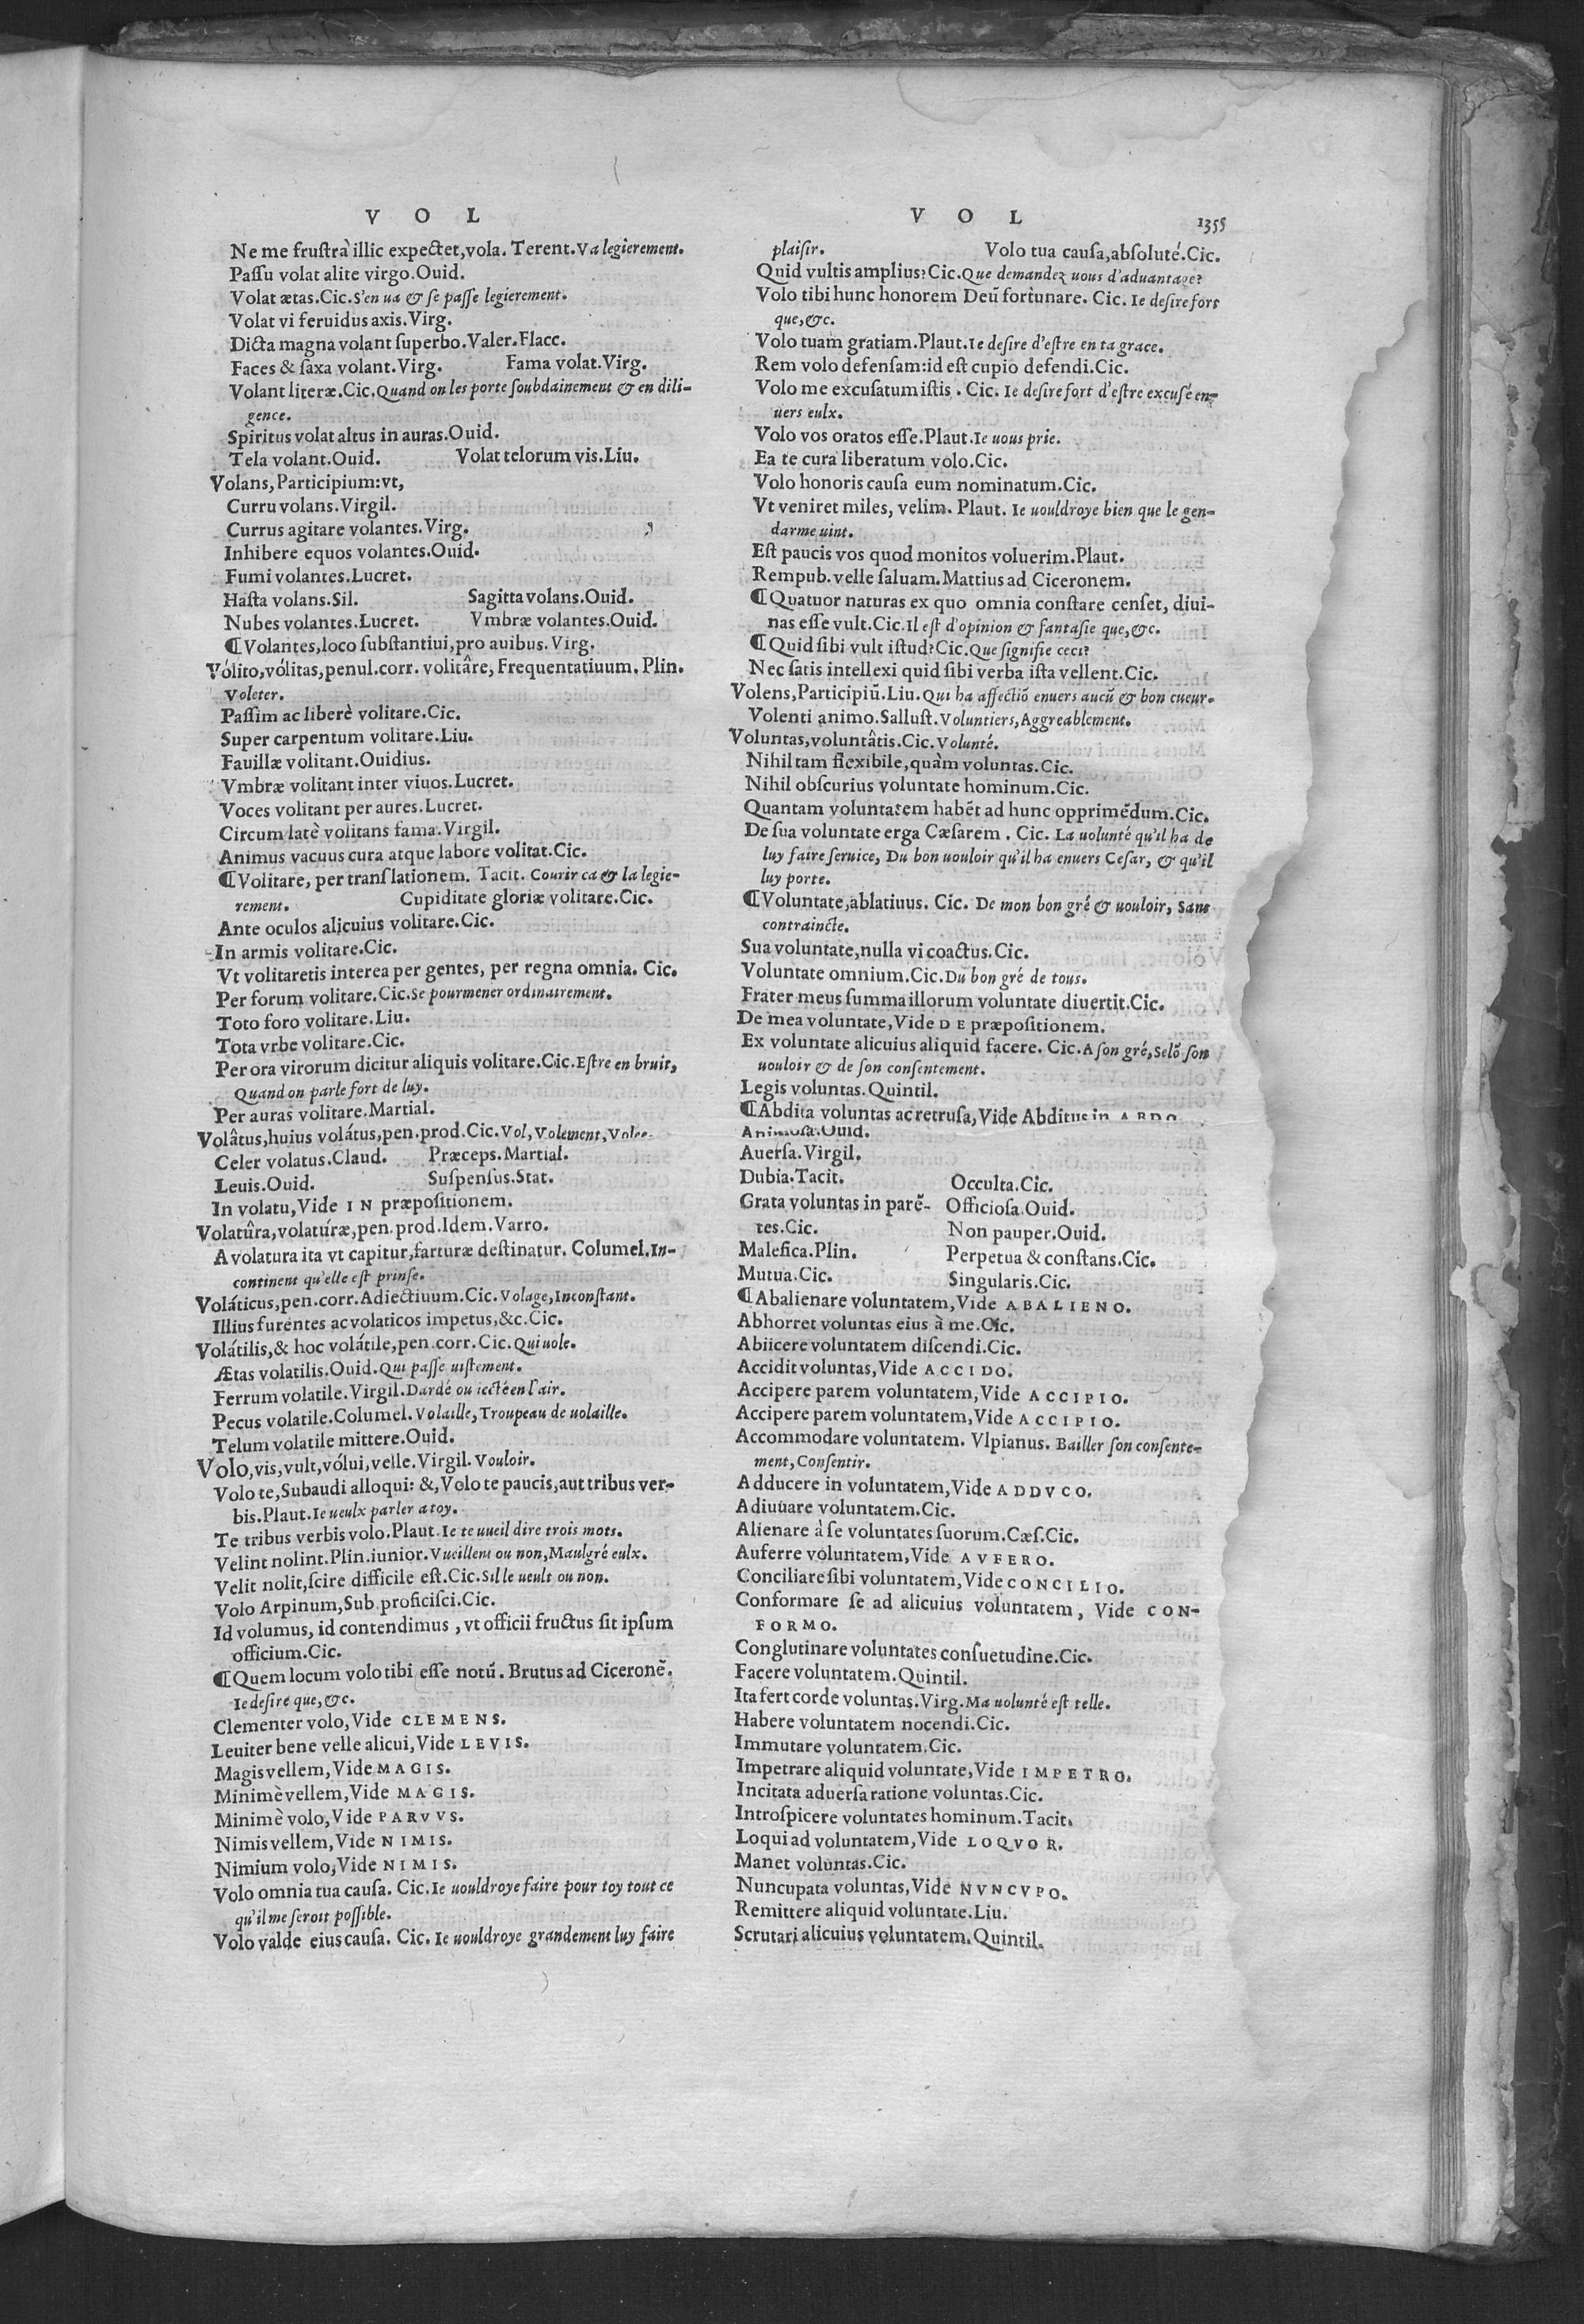 V O L
Ne me fruſtrà illic expectet,vola. Terent.Va legierement.
Paſſu volat alite virgo.Ouid.
Volat ætas.Cic.S'en ua & ſe paſſe legierement.
Volat vi feruidus axis.Virg.
Dicta magna volant ſuperbo.Valer.Flacc.
Faces & ſaxa volant.Virg. Fama volat.Virg.
Volant literæ.Cic.Quand on les porte ſoubdainement & en dili-
gence.
Spiritus volat altus in auras.Ouid.
Tela volant.Ouid. Volat telorum vis.Liu.
Volans,Participium:vt,
Curru volans.Virgil.
Currus agitare volantes.Virg.
Inhibere equos volantes.Ouid.
Fumi volantes.Lucret.
Haſta volans.Sil. Sagitta volans.Ouid.
Nubes volantes.Lucret. Vmbræ volantes.Ouid.
¶Volantes,loco ſubſtantiui,pro auibus.Virg.
Vólito,vólitas,penul.corr. volitâre, Frequentatiuum. Plin.
Voleter.
Paſſim ac liberè volitare.Cic.
Super carpentum volitare.Liu.
Fauillæ volitant.Ouidius.
Vmbræ volitant inter viuos.Lucret.
Voces volitant per aures.Lucret.
Circum latè volitans fama.Virgil.
Animus vacuus cura atque labore volitat.Cic.
¶Volitare, per tranſlationem. Tacit. Courir ca & la legie-
rement. Cupiditate gloriæ volitare.Cic.
Ante oculos alicuius volitare.Cic.
In armis volitare.Cic.
Vt volitaretis interea per gentes, per regna omnia. Cic.
Per forum volitare.Cic.Se pourmener ordinairement.
Toto foro volitare.Liu.
Tota vrbe volitare.Cic.
Per ora virorum dicitur aliquis volitare.Cic.Eſtre en bruit,
Quand on parle fort de luy.
Per auras volitare.Martial.
Volâtus,huius volátus,pen.prod.Cic.Vol,Volement,
Celer volatus.Claud. Præceps.Martial.
Leuis.Ouid. Suſpenſus.Stat.
In volatu,Vide IN præpoſitionem.
Volatûra,volatúræ,pen.prod.Idem.Varro.
A volatura ita vt capitur,farturæ deſtinatur. Columel.In-
continent qu'elle eſt prinſe.
Voláticus,pen.corr.Adiectiuum.Cic.Volage,Inconſtant.
Illius furentes ac volaticos impetus,&c.Cic.
Volátilis,& hoc volátile,pen.corr.Cic.Qui uole.
Ætas volatilis.Ouid.Qui paſſe uiſtement.
Ferrum volatile.Virgil.Dardé ou iecté en l'air.
Pecus volatile.Columel.Volaille,Troupeau de uolaille.
Telum volatile mittere.Ouid.
Volo,vis,vult,vólui,velle.Virgil.Vouloir.
Volo te,Subaudi alloqui: &,Volo te paucis,aut tribus ver-
bis.Plaut.Ie ueulx parler a toy.
Te tribus verbis volo.Plaut.Ie te uueil dire trois mots.
Velint nolint.Plin.iunior.Vueillent ou non,Maulgré eulx.
Velit nolit,ſcire difficile eſt.Cic.Sil le ueult ou non.
Volo Arpinum,Sub.proficiſci.Cic.
Id volumus, id contendimus , vt officii fructus ſit ipſum
officium.Cic.
¶Quem locum volo tibi eſſe notū. Brutus ad Ciceronē.
Ie deſire que,&c.
Clementer volo,Vide CLEMENS.
Leuiter bene velle alicui,Vide LEVIS.
Magis vellem,Vide MAGIS.
Minimè vellem,Vide MAGIS.
Minimè volo,Vide PARVVS.
Nimis vellem,Vide NIMIS.
Nimium volo,Vide NIMIS.
Volo omnia tua cauſa. Cic.Ie uouldroye faire pour toy tout ce
qu'il me ſeroit poſſible.
Volo valde eius cauſa. Cic. Ie uouldroye grandement luy faire
V O L 1355
plaiſir. Volo tua cauſa,abſoluté.Cic.
Quid vultis amplius?Cic.Que demandez uous d'aduantage?
Volo tibi hunc honorem Deū fortunare. Cic. Ie deſire fort
que,&c.
Volo tuam gratiam.Plaut.Ie deſire d'eſtre en ta grace.
Rem volo defenſam:id eſt cupio defendi.Cic.
Volo me excuſatum iſtis . Cic. Ie deſire fort d'eſtre excuſé en-
uers eulx.
Volo vos oratos eſſe.Plaut.Ie uous prie.
Ea te cura liberatum volo.Cic.
Volo honoris cauſa eum nominatum.Cic.
Vt veniret miles, velim. Plaut. Ie uouldroye bien que le gen-
darme uint.
Eſt paucis vos quod monitos voluerim.Plaut.
Rempub.velle ſaluam.Mattius ad Ciceronem.
¶Quatuor naturas ex quo omnia conſtare cenſet, diui-
nas eſſe vult.Cic.Il eſt d'opinion & fantaſie que,&c.
¶Quid ſibi vult iſtud?Cic.Que ſignifie ceci?
Nec ſatis intellexi quid ſibi verba iſta vellent.Cic.
Volens,Participiū.Liu.Qui ha affectiō enuers aucū & bon cueur.
Volenti animo.Salluſt.Voluntiers,Aggreablement.
Voluntas,voluntâtis.Cic.Volunté.
Nihil tam flexibile,quàm voluntas.Cic.
Nihil obſcurius voluntate hominum.Cic.
Quantam voluntatem habēt ad hunc opprimēdum.Cic.
De ſua voluntate erga Cæſarem . Cic. La uolunté qu'il ha de
luy faire ſeruice, Du bon uouloir qu'il ha enuers Ceſar, & qu'il
luy porte.
¶Voluntate,ablatiuus. Cic. De mon bon gré & uouloir, Sans
contraincte.
Sua voluntate,nulla vi coactus.Cic.
Voluntate omnium.Cic.Du bon gré de tous.
Frater meus ſumma illorum voluntate diuertit.Cic.
De mea voluntate,Vide DE præpoſitionem.
Ex voluntate alicuius aliquid facere. Cic.A ſon gré,Selō ſon
uouloir & de ſon conſentement.
Legis voluntas.Quintil.
¶Abdita voluntas ac retruſa,Vide Abditus in ABDO
Animoſa.Ouid.
Auerſa.Virgil.
Dubia.Tacit. Occulta.Cic.
Grata voluntas in parē- Officioſa.Ouid.
tes.Cic. Non pauper.Ouid.
Malefica.Plin. Perpetua & conſtans.Cic.
Mutua.Cic. Singularis.Cic.
¶Abalienare voluntatem,Vide ABALIENO.
Abhorret voluntas eius à me.Cic.
Abiicere voluntatem diſcendi.Cic.
Accidit voluntas,Vide ACCIDO.
Accipere parem voluntatem,Vide ACCIPIO.
Accipere parem voluntatem,Vide ACCIPIO.
Accommodare voluntatem. Vlpianus. Bailler ſon conſente-
ment,Conſentir.
Adducere in voluntatem,Vide ADDVCO.
Adiuuare voluntatem.Cic.
Alienare à ſe voluntates ſuorum.Cæſ.Cic.
Auferre voluntatem,Vide AVFERO.
Conciliare ſibi voluntatem,Vide CONCILIO.
Conformare ſe ad alicuius voluntatem, Vide CON-
FORMO.
Conglutinare voluntates conſuetudine.Cic.
Facere voluntatem.Quintil.
Ita fert corde voluntas.Virg.Ma uolunté eſt telle.
Habere voluntatem nocendi.Cic.
Immutare voluntatem.Cic.
Impetrare aliquid voluntate,Vide IMPETRO.
Incitata aduerſa ratione voluntas.Cic.
Introſpicere voluntates hominum.Tacit.
Loqui ad voluntatem,Vide LOQVOR.
Manet voluntas.Cic.
Nuncupata voluntas,Vide NVNCVPO.
Remittere aliquid voluntate.Liu.
Scrutari alicuius voluntatem.Quintil.